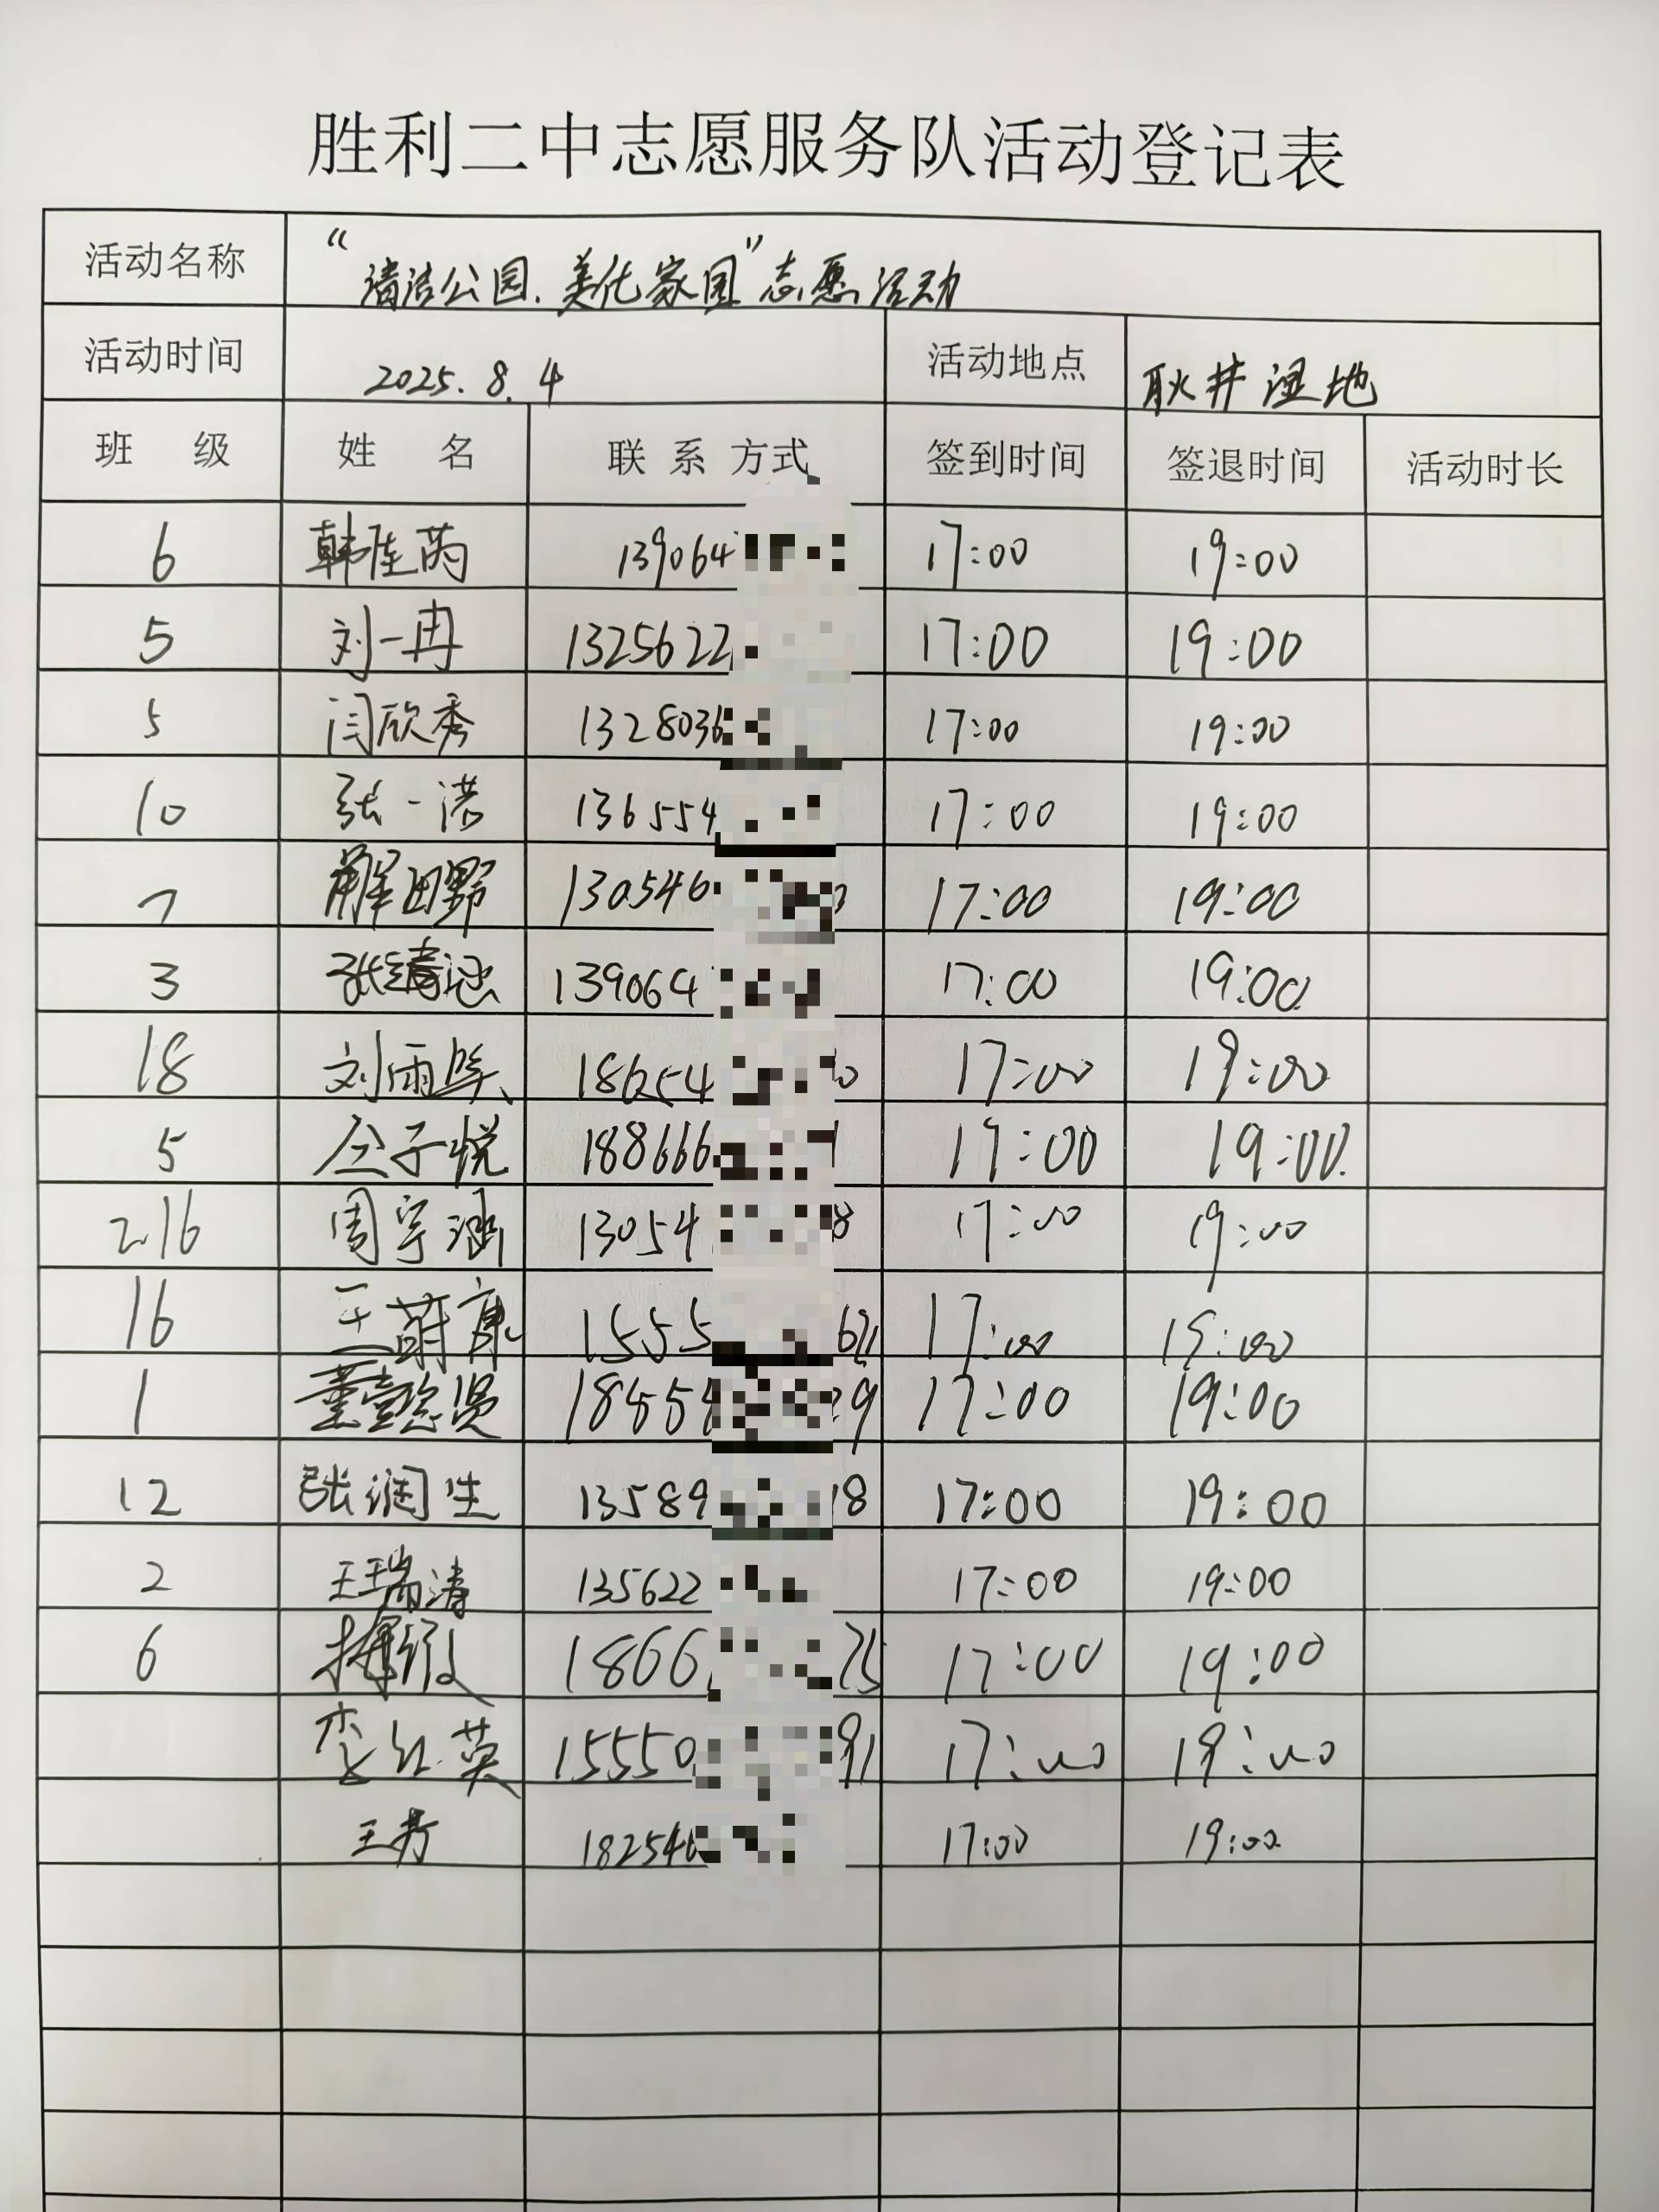 胜利二中志愿服务队活动登记表
活动名称 “清洁公园、美化家园”志愿活动
活动时间 2025.8.4 活动地点 耿井湿地
班 级 姓 名 联 系 方式 签到时间 签退时间 活动时长
6 韩佳芮 139064 17:00 19:00
5 刘一冉 1325622 17:00 19:00
5 闫欣秀 1328036 17:00 19:00
10 张一诺 136554 17:00 19:00
7 解田野 130546 17:00 19:00
3 张清涵 139064 17:00 19:00
18 刘雨 18654 17:00 19:00
5 仝子悦 188666 1 17:00 19:00
2.16 周宇涵 13054 8 17:00 19:00
16 王蔚康 1555 621 17:00 19:00
1 董懿贤 18554 29 17:00 19:00
12 张润生 13589 18 17:00 19:00
2 王瑞涛 135622 17:00 19:00
6 1866 75 17:00 19:00
李红英 15550 91 17:00 19:00
王芳 182546 17:00 19:00